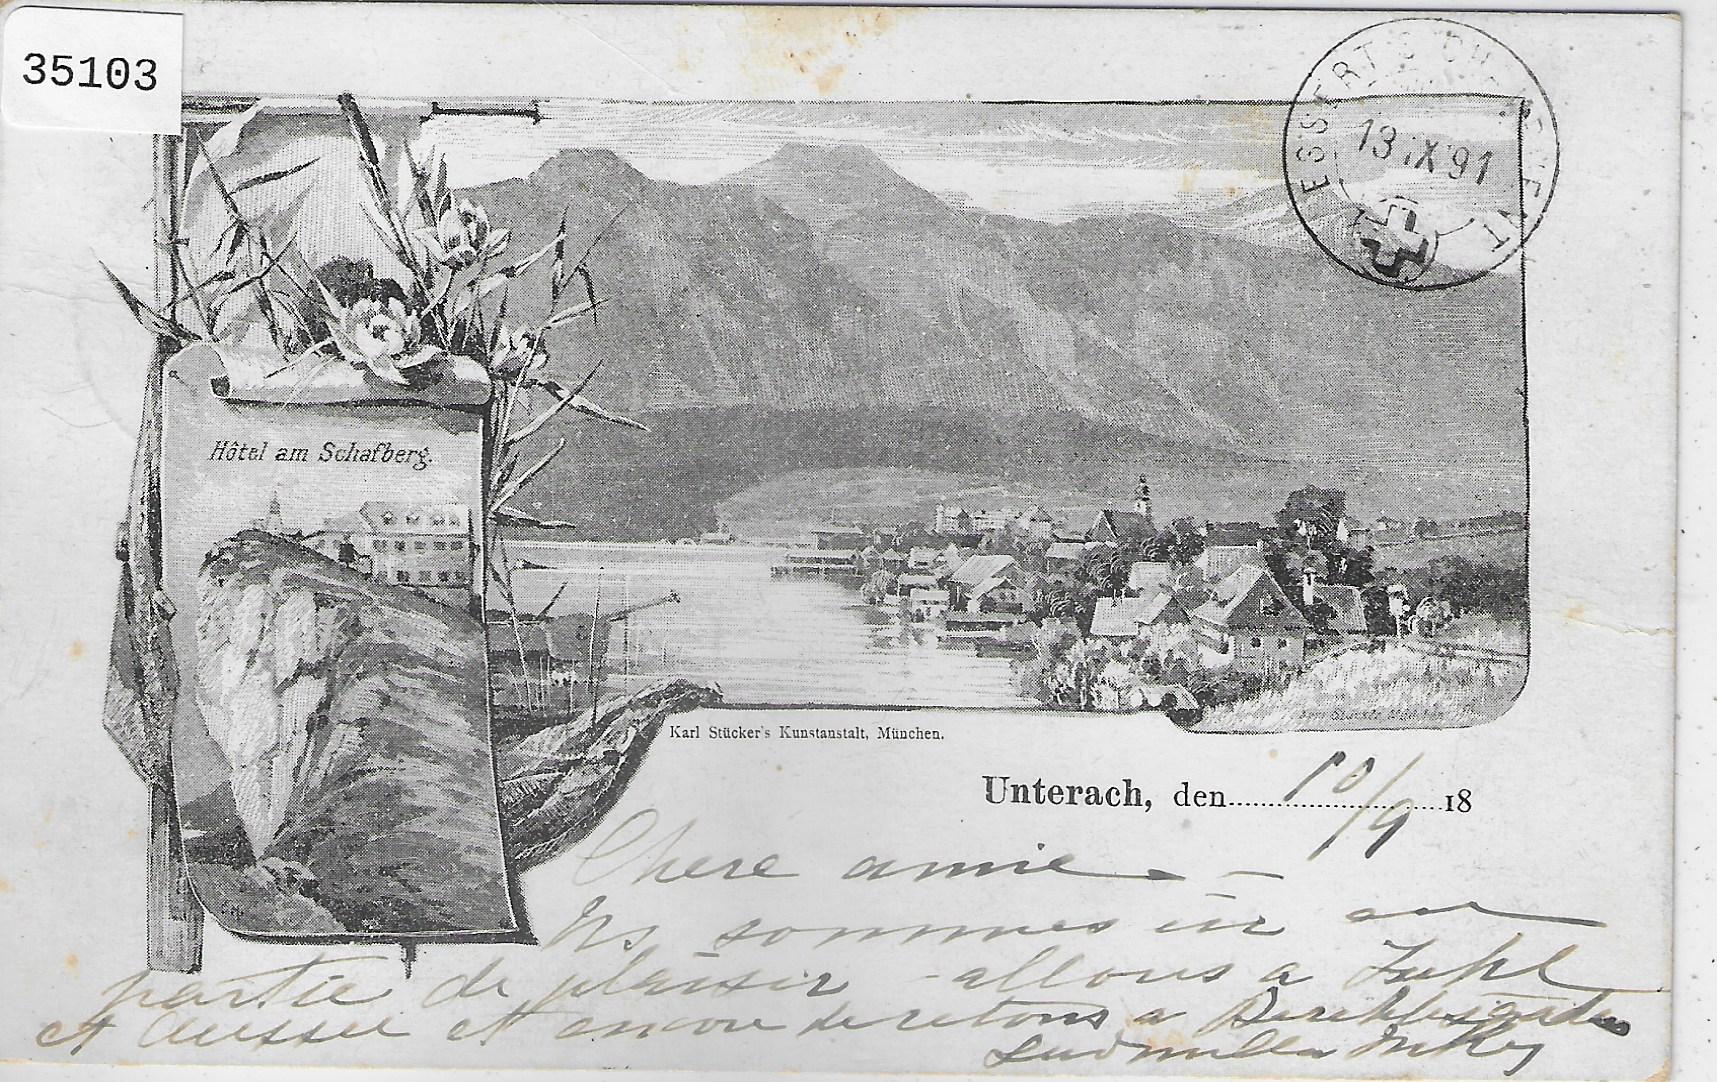 35103
ESSERT S CH
13.IX 91
Hôtel am Schafberg.
Karl Stücker's Kunstanstalt, München.
Unterach, den 10/9 18
Chere amie. —
Ns sommes en
partie de plaisir - allons a Ischl
et Aussee et encore de retons a Berchtesgaden
Ludmilla